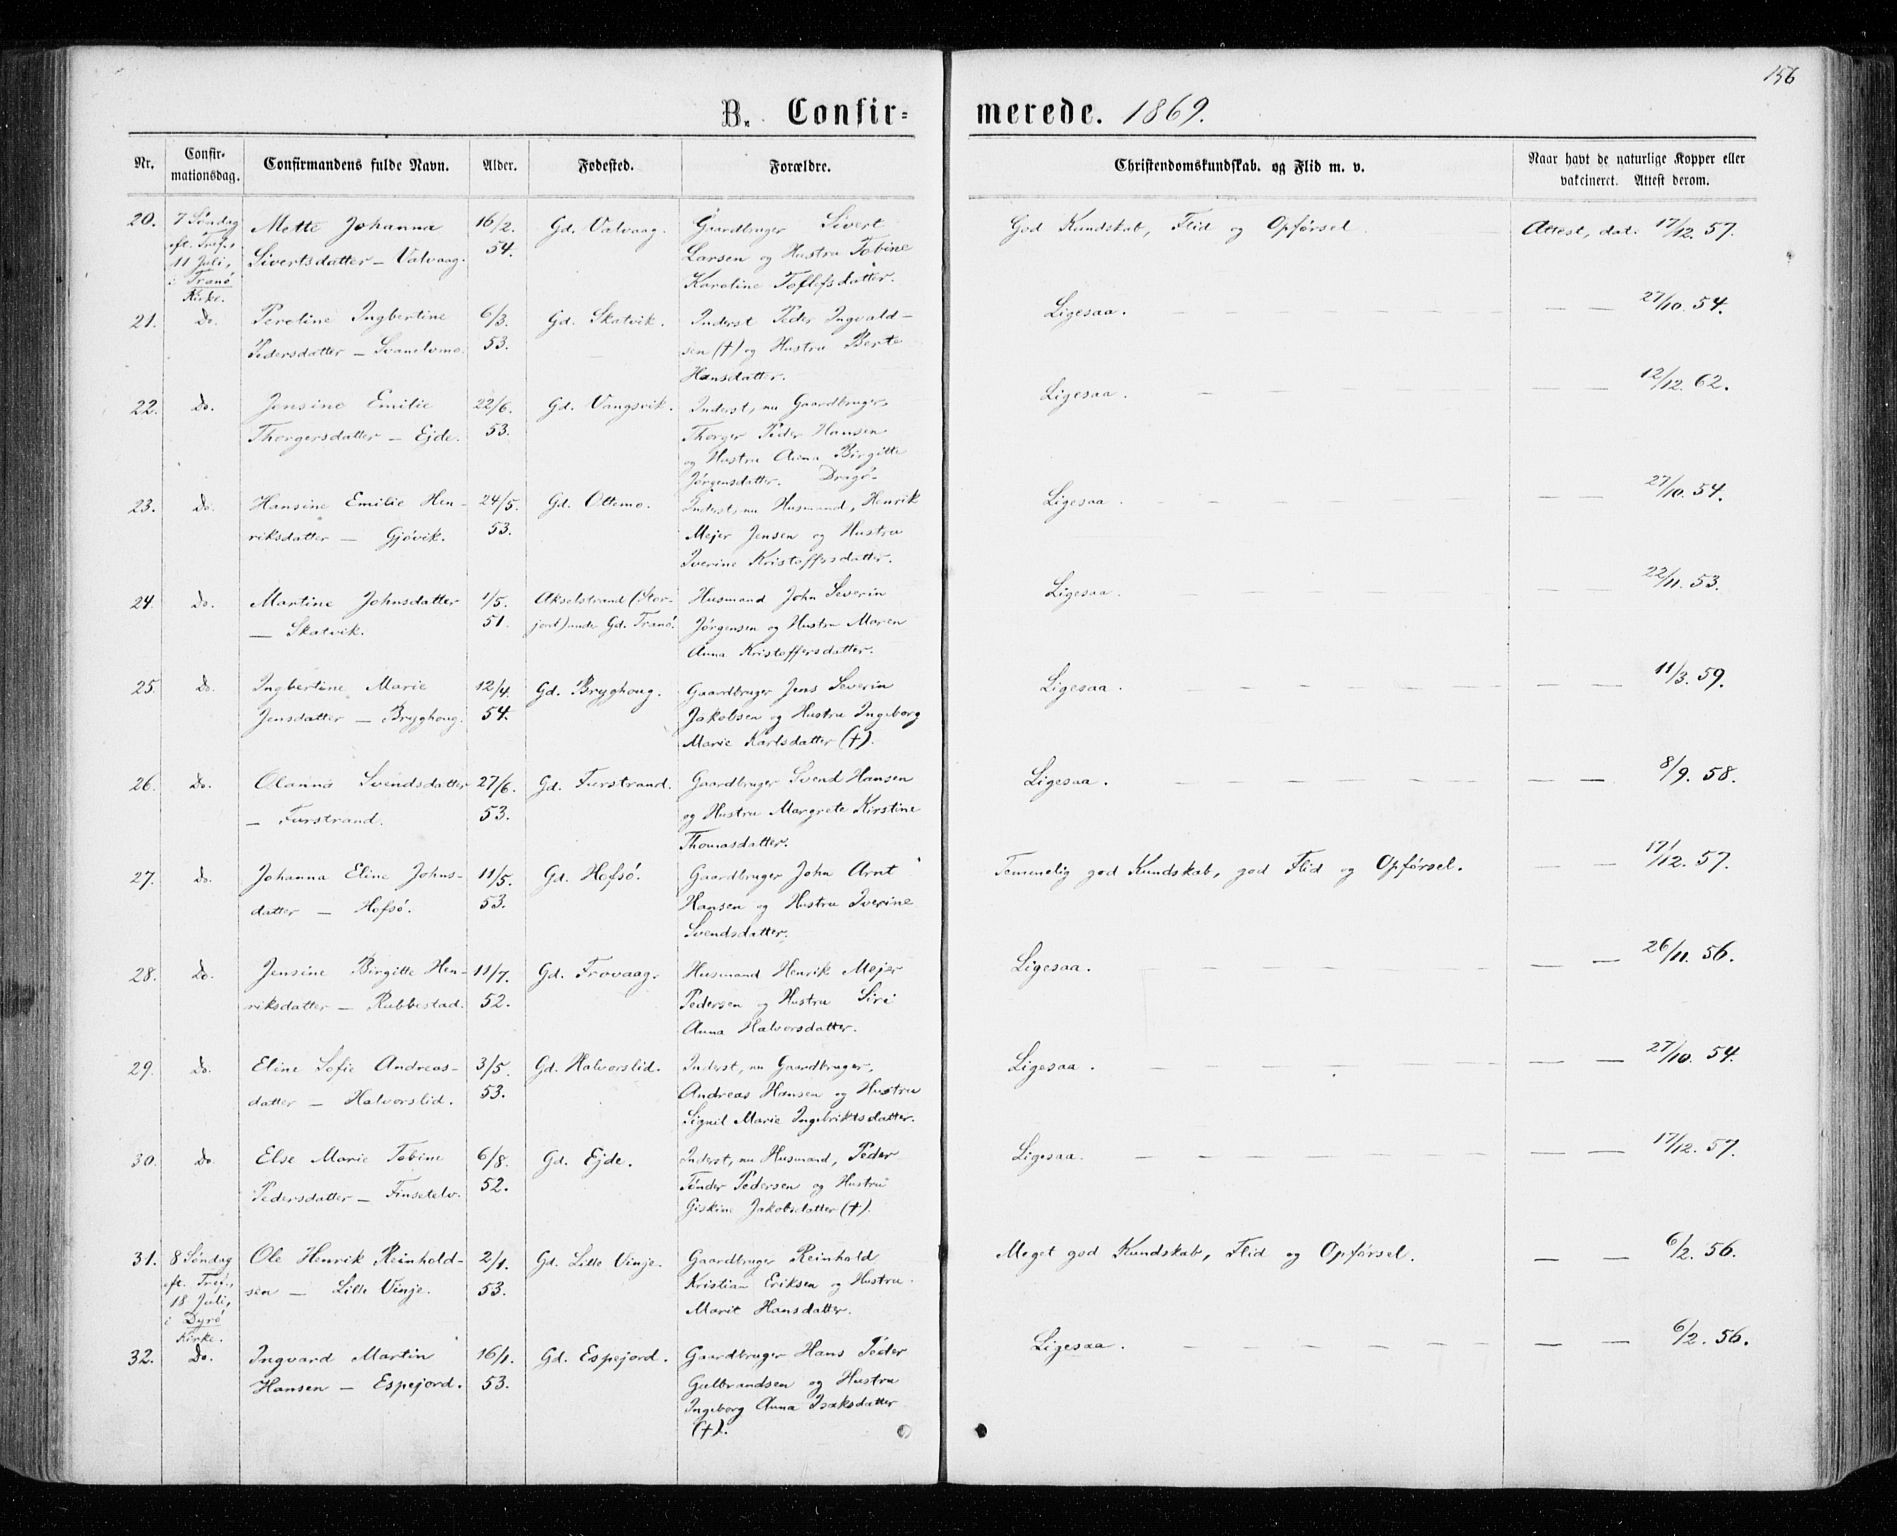 156
B. Confir=merede. 1869.
Nr. Confir=mationsdag. Confirmandens fulde Navn. Alder. Fødested. Forældre. Christendomskundskab. og Flid m. v. Naar havt de naturlige Kopper eller vakcineret. Attest derom.
20. 7 Søndag Mette Johanna 16/2. Gd. Valvaag. Gaardbruger Sivert God Kundskab, Flid og Opførsel. Attest, dat. 17/12. 57.
eft. Tref., Sivertsdatter – Valvaag. 54. Larsen og Hustru Tobine
11 Juli, Karoline Toflefsdatter.
i Tranø
Kirke.
21. Do. Peroline Ingbertine 6/3. Gd. Skatvik. Inderst Peder Ingvald- Ligesaa. — — 27/10. 54.
Pedersdatter – Svanelvmo. 53. sen (†) og Hustru Berte
Hansdatter.
22. Do. Jensine Emilie 22/6. Gd. Vangsvik. Inderst, nu Gaardbruger, Ligesaa. — — 12/12. 62.
Thorgersdatter – Ejde. 53. Thorger Peder Hansen
og Hustru Anna Birgitte
Jørgensdatter. Dragø.
23. Do. Hansine Emilie Hen- 24/5. Gd. Ottemo. Inderst, nu Husmand, Henrik Ligesaa. — — 27/10. 54.
riksdatter – Gjøvik. 53. Mejer Jensen og Hustru
Iverine Kristoffersdatter.
24. Do. Martine Johnsdatter 1/5. Akselstrand (Stor- Husmand John Severin Ligesaa. — — 22/11. 53.
– Skatvik. 51. jord) under Gd. Tranø. Jørgensen og Hustru Maren
Anna Kristoffersdatter.
25. Do. Ingbertine Marie 12/4. Gd. Brygghoug. Gaardbruger Jens Severin Ligesaa. — — 11/3. 59.
Jensdatter – Brygghoug. 54. Jakobsen og Hustru Ingeborg
Marie Karlsdatter (†).
26. Do. Olanna Svendsdatter 27/6. Gd. Furstrand. Gaardbruger Svend Hansen Ligesaa. — — 8/9. 58.
– Furstrand. 53. og Hustru Margrete Kirstine
Thomasdatter.
27. Do. Johanna Eline Johns- 11/5. Gd. Hofsø. Gaardbruger John Arnt Temmelig god Kundskab, god Flid og Opførsel. — — 17/12. 57.
datter – Hofsø. 53. Hansen og Hustru Iverine
Svendsdatter.
28. Do. Jensine Birgitte Hen- 11/7. Gd. Frovaag. Husmand Henrik Mejer Ligesaa. — — 26/11. 56.
riksdatter – Rubbestad. 52. Pedersen og Hustru Siri
Anna Halvorsdatter.
29. Do. Eline Sofie Andreas- 3/5. Gd. Halvorslid. Inderst, nu Gaardbruger, Ligesaa. — — 27/10. 54.
datter – Halvorslid. 53. Andreas Hansen og Hustru
Signil Marie Ingebriktsdatter.
30. Do. Else Marie Tobine 6/8. Gd. Ejde. Inderst, nu Husmand, Peder Ligesaa. — — 17/12. 57.
Pedersdatter – Finsetelv. 52. Tinder Pedersen og Hustru
Giskine Jakobsdatter (†).
31. 8 Søndag Ole Henrik Reinhold- 2/1. Gd. Lille Vinje. Gaardbruger Reinhold Meget god Kundskab, Flid og Opførsel. — — 6/2. 56.
eft. Tref., sen – Lille Vinje. 53. Kristian Eriksen og Hustru
18 Juli, Marit Hansdatter.
i Dyrø
Kirke.
32. Do. Ingvard Martin 16/1. Gd. Espejord. Gaardbruger Hans Peder Ligesaa. — — 6/2. 56.
Hansen – Espejord. 53. Gulbrandsen og Hustru
Ingeborg Anna Isaksdatter
(†).